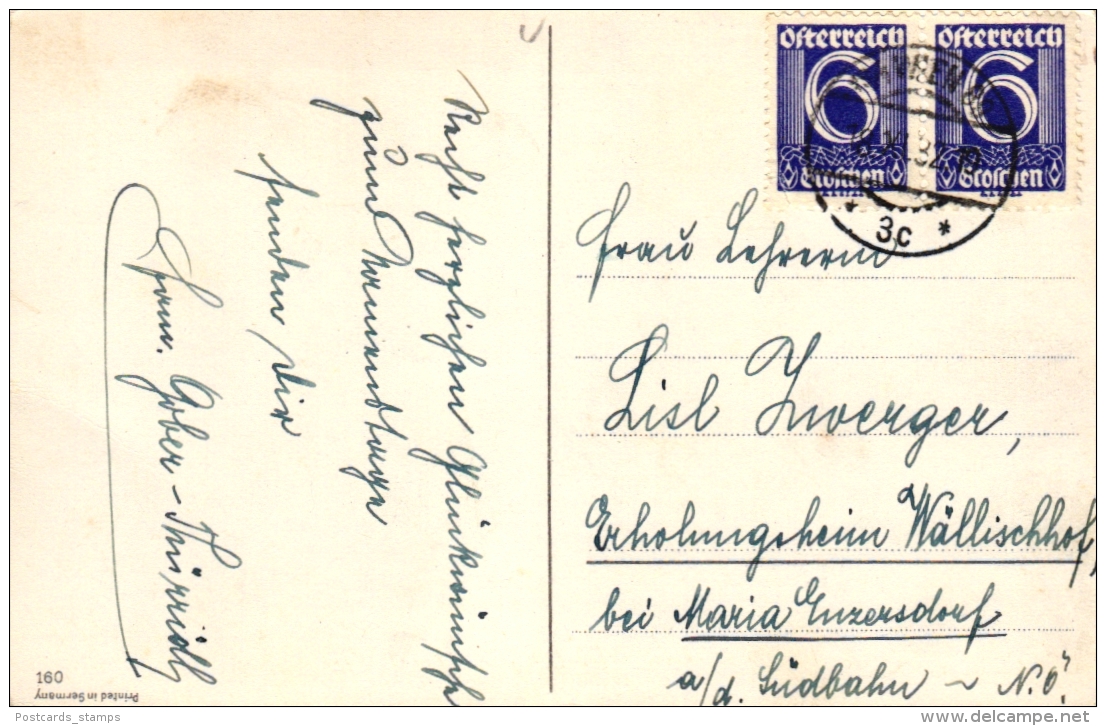 Recht herzlichen Glückwünsche
zum Namenstage
senden dir
Fam. Gober -
Österreich Österreich
6 6
Groschen Groschen
3c *
Frau Lehrerin
Lisl Zwerger,
Erholungsheim Wällischhof,
bei Maria Enzersdorf
a/d. Südbahn ~ N.Ö.
160
Printed in Germany
Postcards_stamps
www.delcampe.net